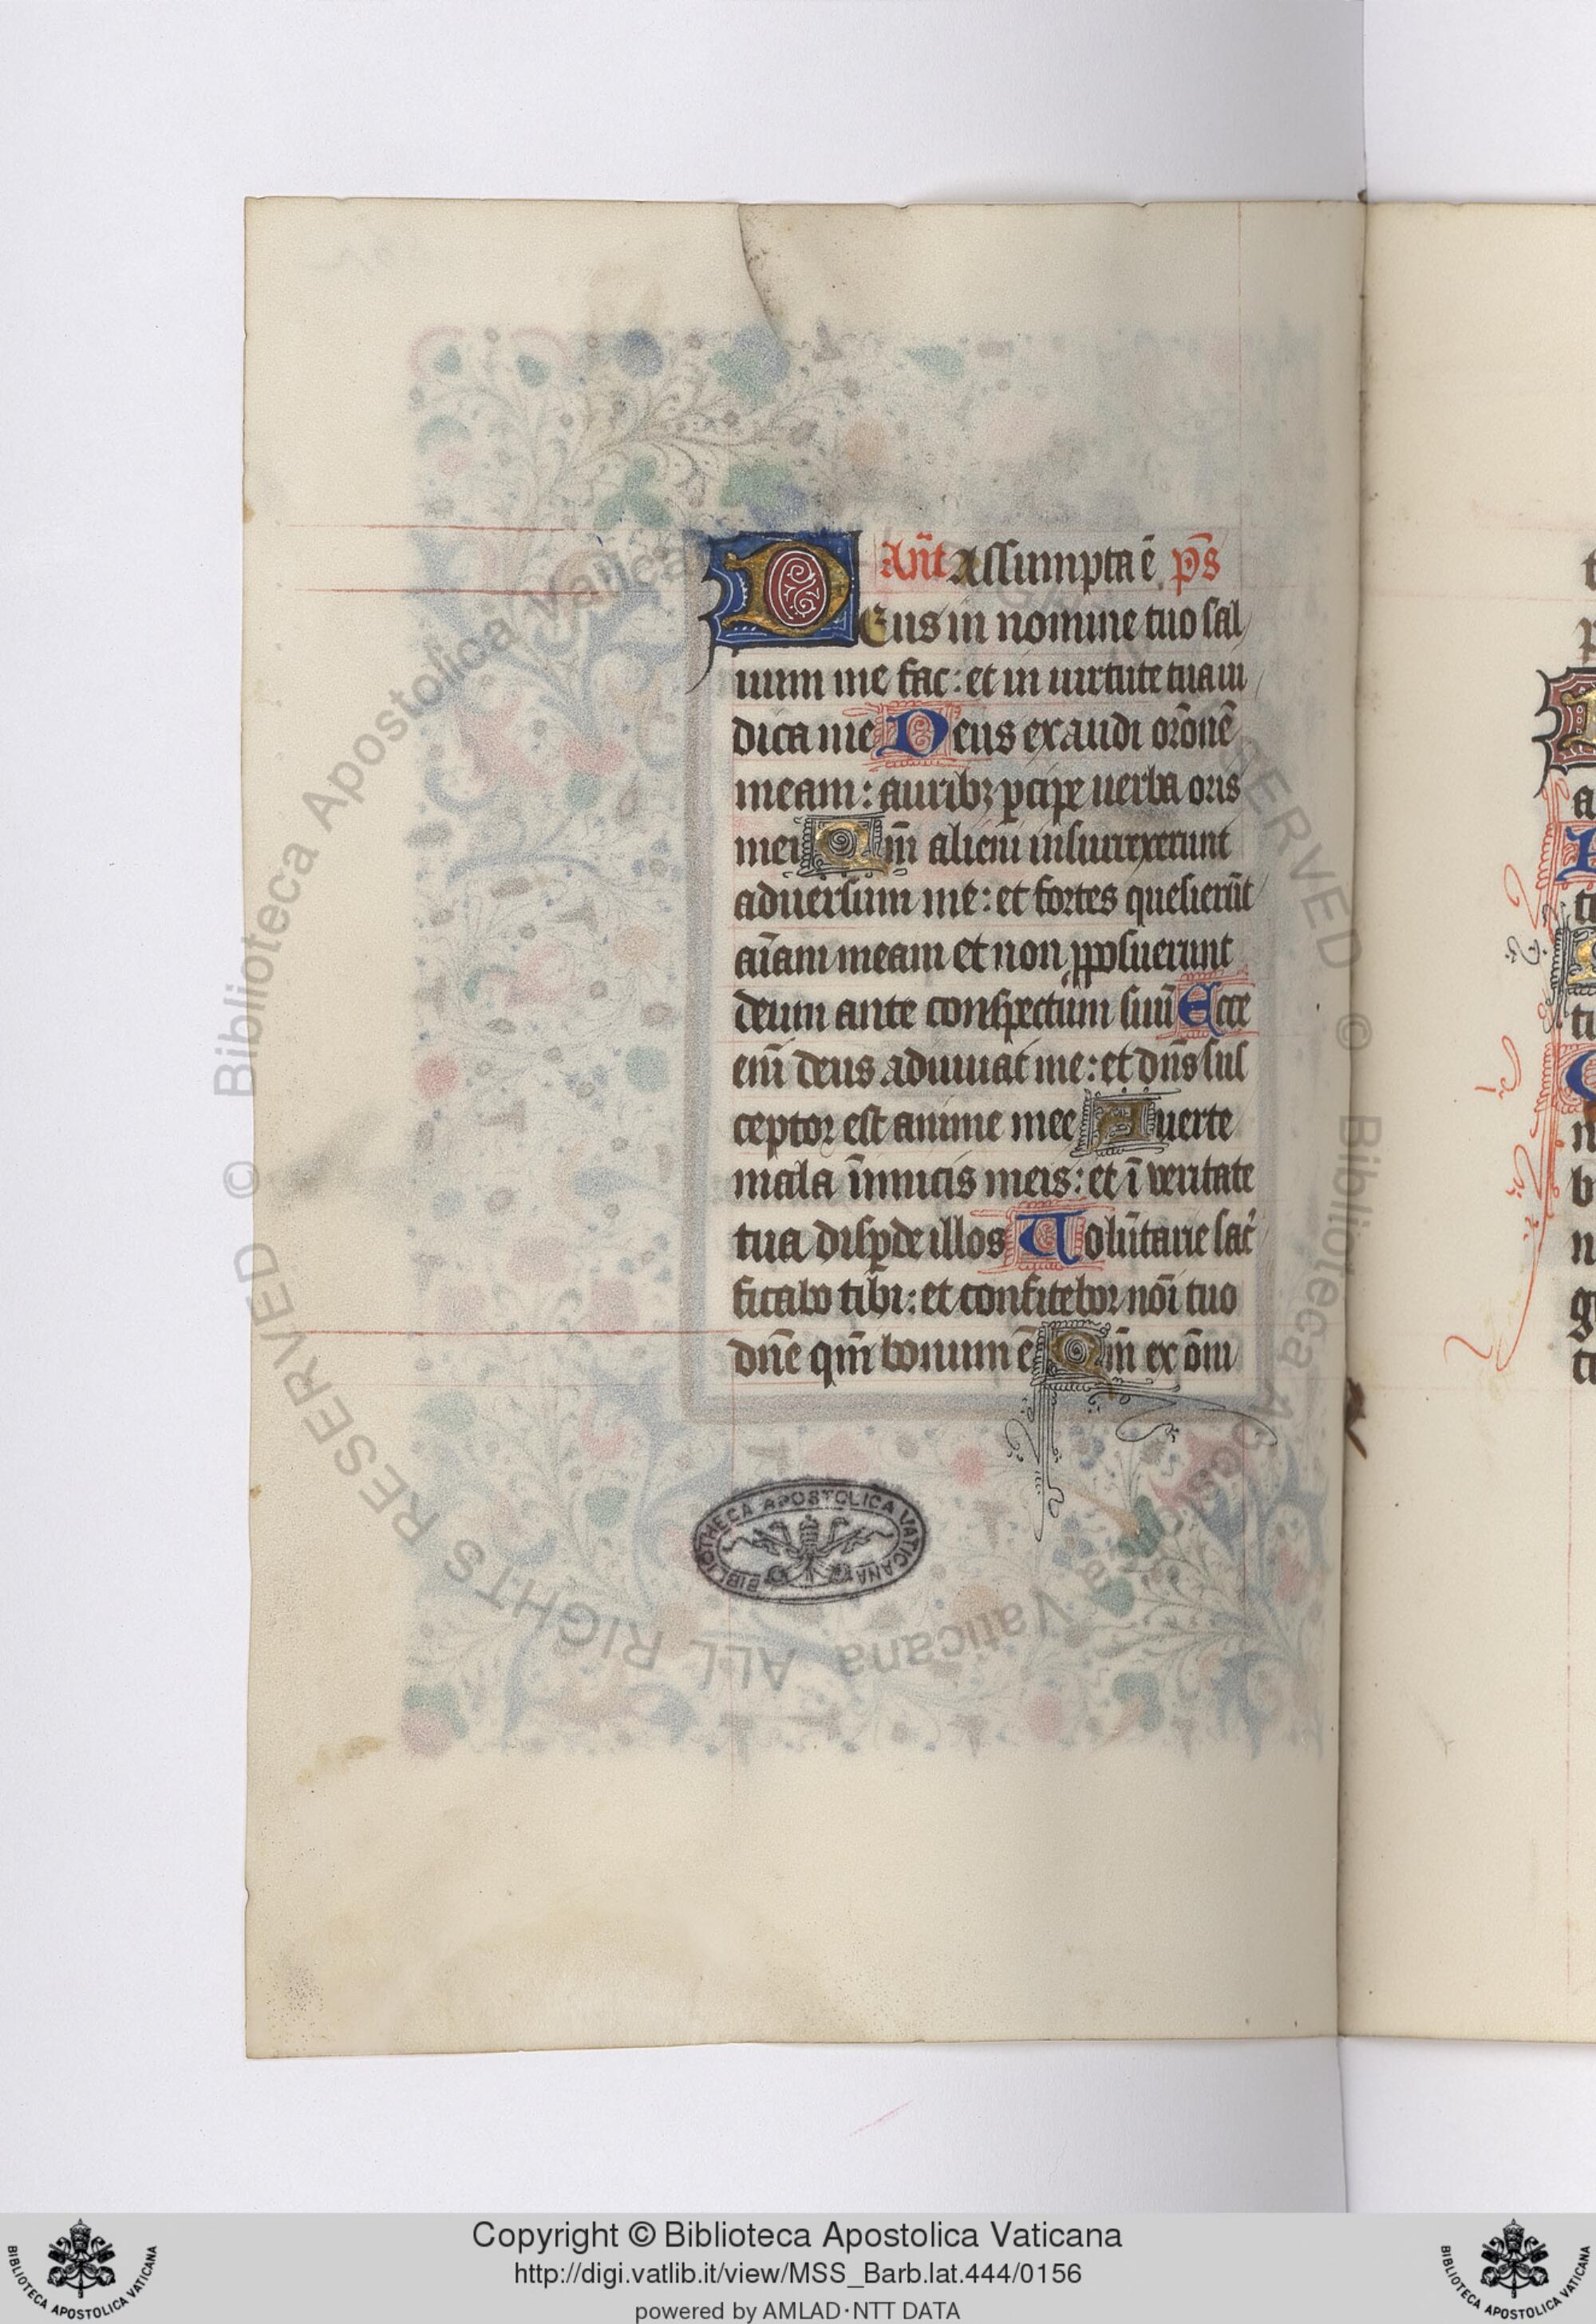 Añt Assumpta ē. p̄s
Deus in nomine tuo sal
uum me fac: et in uirtute tua iu
dica me Deus exaudi or̄onē
meam: auribꝫ ꝑcipe uerba oris
mei Qm̄ alieni insurrexerunt
aduersum me: et fortes quesierūt
aīam meam et non ꝓposuerunt
deum ante conspectum suū Ecce
enī deus adiuuat me: et dn̄s sus
ceptor est anime mee Auerte
mala īimicis meis: et ī ueritate
tua disꝑde illos Uolūtarie sac̄
ficabo tibi: et confitebor nōi tuo
dn̄e qm̄ bonum ē Qm̄ ex om̄i
BIBLIOTHECA APOSTOLICA VATICANA
© Biblioteca Apostolica Vaticana ALL RIGHTS RESERVED
Copyright © Biblioteca Apostolica Vaticana
http://digi.vatlib.it/view/MSS_Barb.lat.444/0156
powered by AMLAD·NTT DATA
BIBLIOTECA APOSTOLICA VATICANA
BIBLIOTECA APOSTOLICA VATICANA